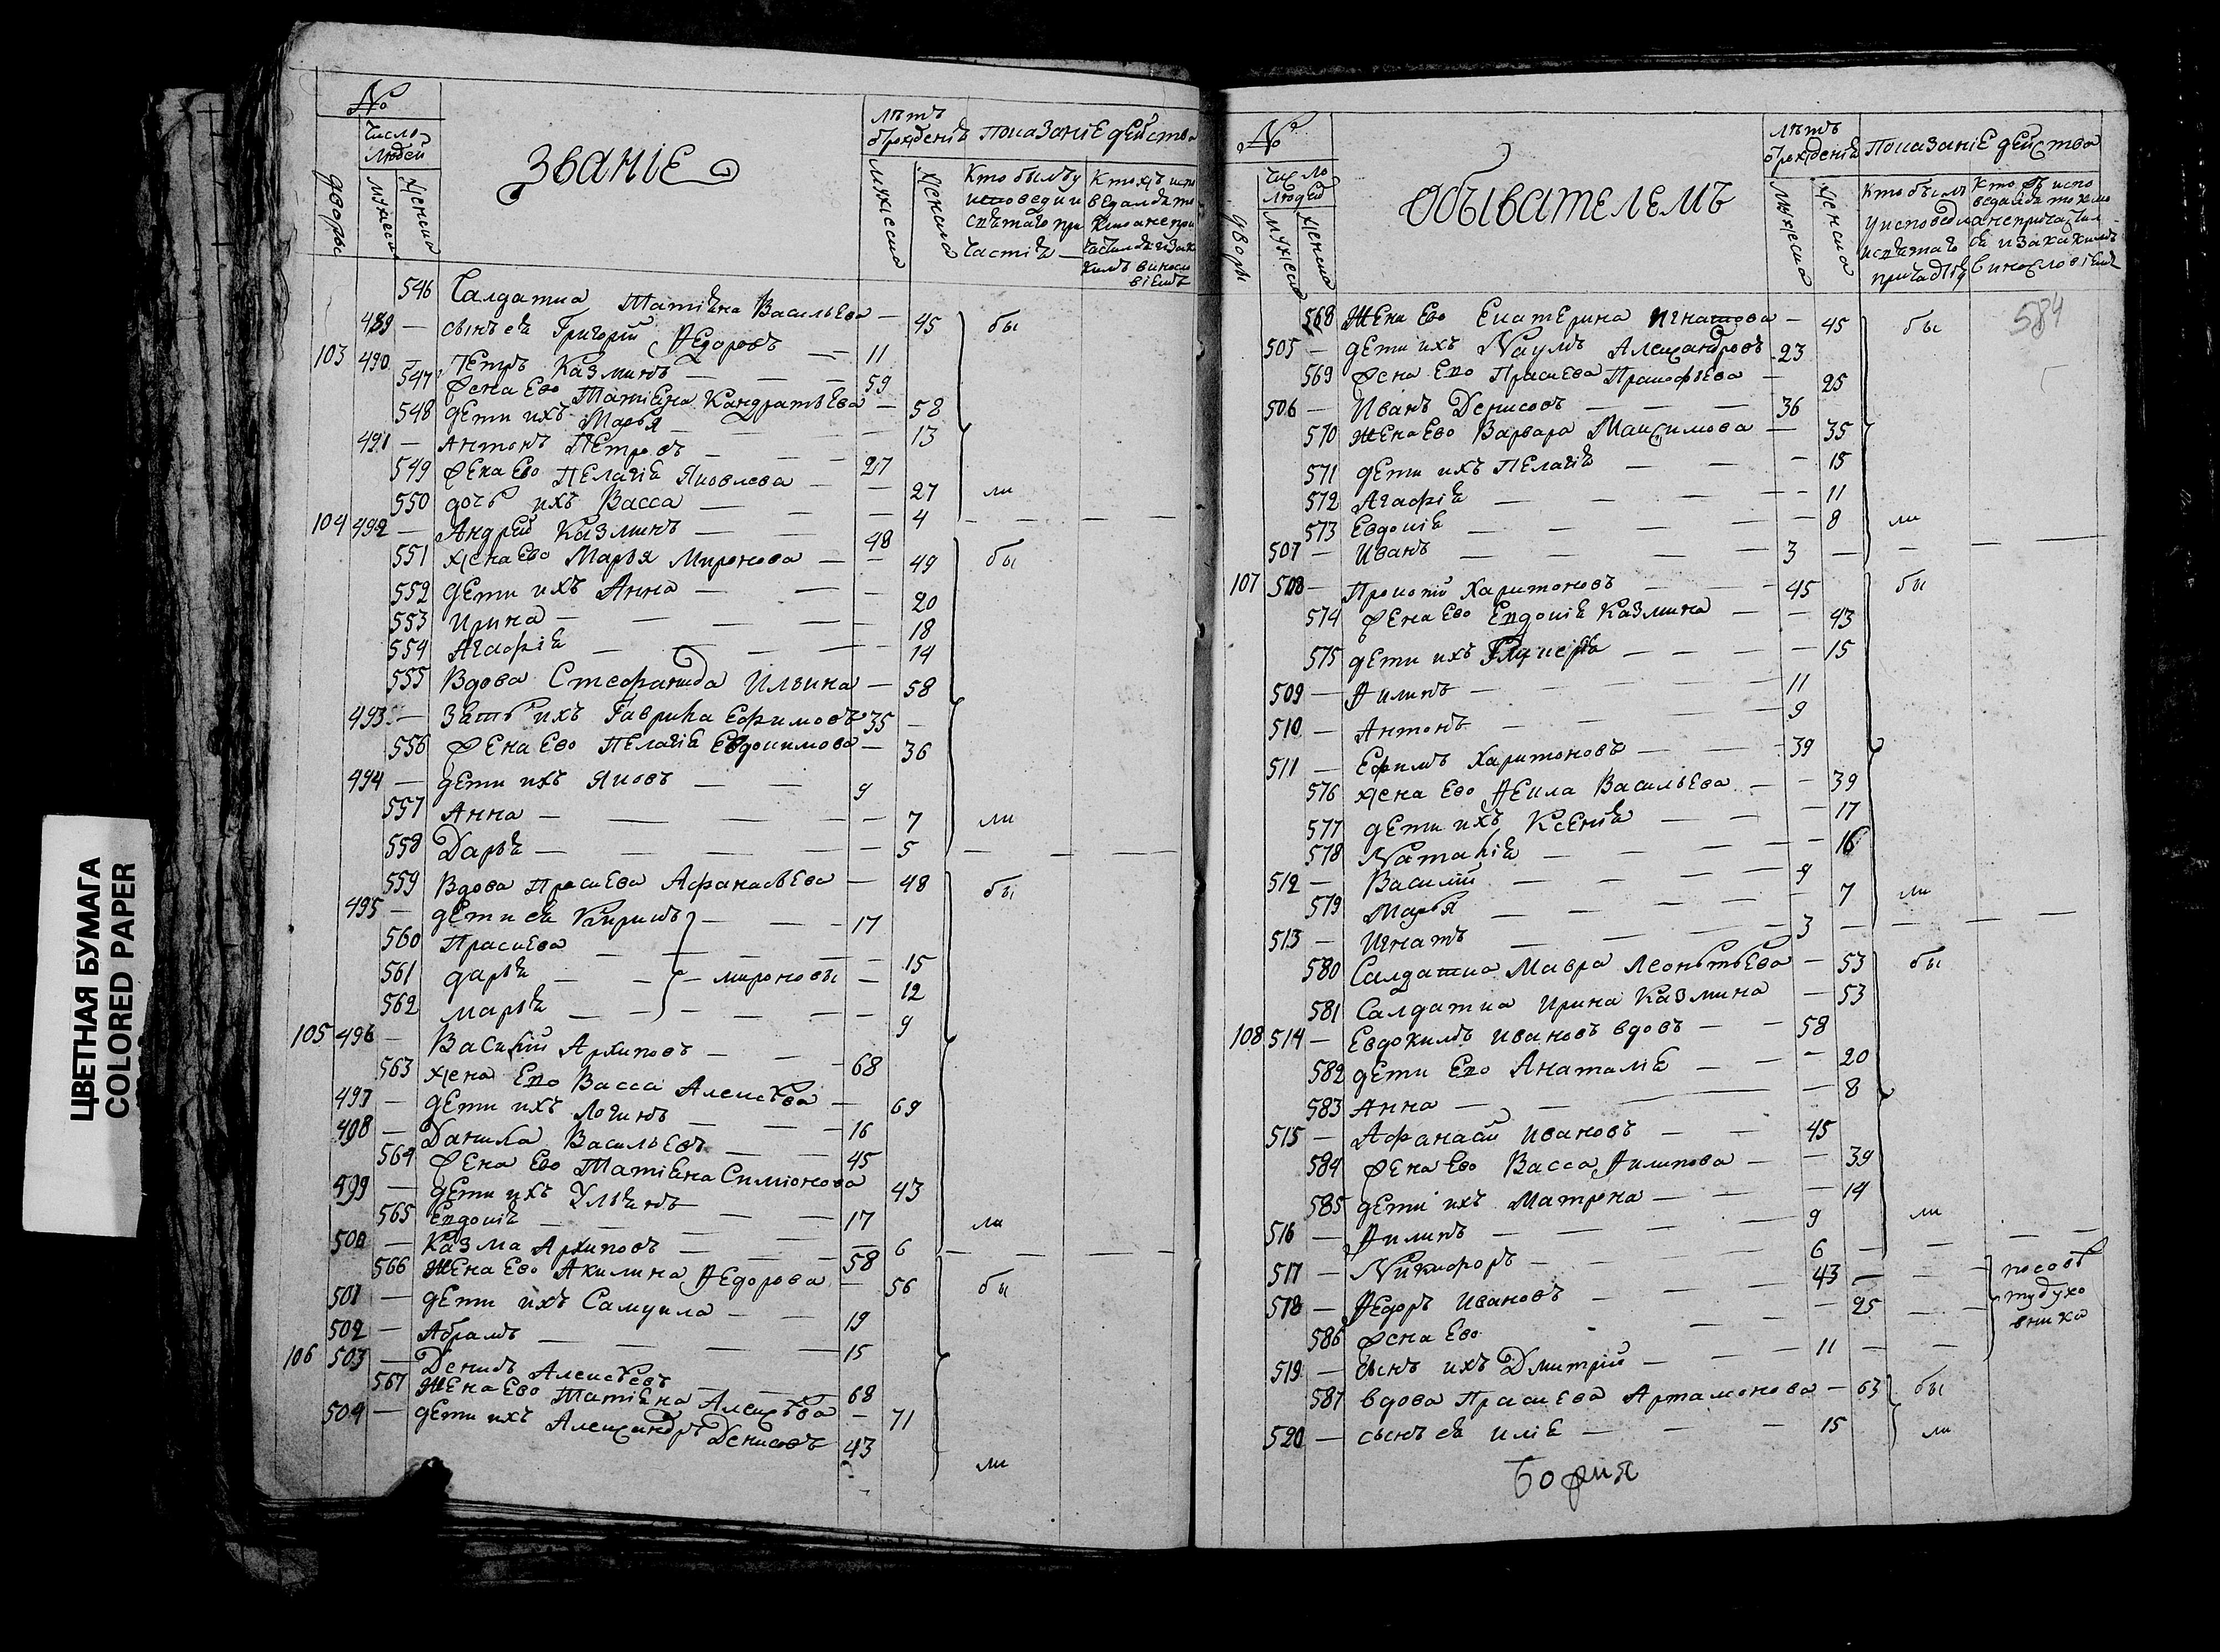 ЦВЕТНАЯ БУМАГА
COLORED PAPER
№
Число людей
дворы
мужеска
женска
Званіе
лѣтъ отрожденія
мужеска
женска
Показаніе действа
Кто былъ у исповеди и святаго причастія
546 Салдатка Татіяна Васильева — 45 бы
489 — сынъ ея Григорій Ѳедоровъ — 11
103 490 — Петръ Казминъ — — — 59
547 Жена Ево Татіяна Кандратьева — 58
548 дети ихъ Марья — — — 13
491 — Антонъ Петровъ — — — 27
549 Жена Ево Пелагія Яковлева — — 27 ли
550 дочь ихъ Васса — — — 4
104 492 — Андрей Казминъ — — 48
551 жена Ево Марья Миронова — — 49 бы
552 дети ихъ Анна — — — 20
553 Ирина — — — — — 18
554 Агафія — — — — 14
555 Вдова Стефанида Ильина — 58
493 — Зять ихъ Гаврила Ефимовъ 35 —
556 Жена Ево Пелагія Евдокимова — 36
494 — дети ихъ Яковъ — — 9
557 Анна — — — — — 7 ли
558 Дарья — — — — — 5
559 Вдова Праскева Афанасьева — 48 бы
495 — дети ея Кирилъ — — — 17
560 Праскева — — — — 15
561 дарья — — — мироновы — 12
562 марья — — — — — 9
105 496 — Василій Архиповъ — — — 68
563 жена Ево Васса Алексѣва — 69
497 — дети ихъ Логинъ — — — 16
498 — Данила Васильевъ — — 45
564 Жена Ево Татіяна Симіонова 43
499 — дети ихъ Ульянъ — — — 17
565 Евдокія — — — — 6 ли
500 — Казма Архиповъ — — — 58
566 Жена Ево Акилина Ѳедорова — 56 бы
501 — дети ихъ Самуила — — 19
502 — Абрамъ — — — — 15
106 503 — Денисъ Алексѣевъ — — — 68
567 Жена Ево Татіяна Алексѣва — 71
504 — дети ихъ Александръ Денисовъ 43 ли
№
Число людей
дворы
мужеска
женска
Обывателемъ
лѣтъ отрожденія
мужеска
женска
Показаніе действа
584
568 Жена Ево Екатерина Игнатова — 45 бы
505 — дети ихъ Наумъ Александровъ 23
569 Жена Ево Праскева Прокофьева — 25
506 — Иванъ Денисовъ — — — 36
570 Жена Ево Варвара Максимова — 35
571 дети ихъ Пелагія — — — 15
572 Агафія — — — — — 11
573 Евдокія — — — — — 8 ли
507 — Иванъ — — — — 3 —
107 508 — Прокопій Харитоновъ — — — 45 бы
574 Жена Ево Евдокія Казмина — — 43
575 дети ихъ — — — 15
509 — Ѳилипъ — — — — 11
510 — Антонъ — — — — 9
511 — Ефимъ Харитоновъ — — — 39
576 жена Ево Ѳекла Васильева — — 39
577 дети ихъ Ксенія — — — 17
578 Наталія — — — — — 16
512 — Василій — — — — 9
579 Марья — — — — — 7 ли
513 — Игнатъ — — — — 3 —
580 Салдатка Мавра Леонтьева — 53 бы
581 Салдатка Ирина Казмина — 53
108 514 — Евдокимъ Ивановъ вдовъ — — 58
582 дети Ево Анаталія — — 20
583 Анна — — — — 8
515 — Афанасій Ивановъ — — 45
584 Жена Ево Васса Ѳилипова — — 39
585 дети ихъ Матрена — — — 14
516 — Ѳилипъ — — — — 9 ли
517 — Никифоръ — — — 6 —
518 — Ѳедоръ Ивановъ — — — 43 —
586 Жена Ево — — — 25
519 — Сынъ ихъ Дмитрій — — — 11
587 вдова Праскева Артамонова — 63 бы
520 — сынъ ея Илія — — — 15 ли